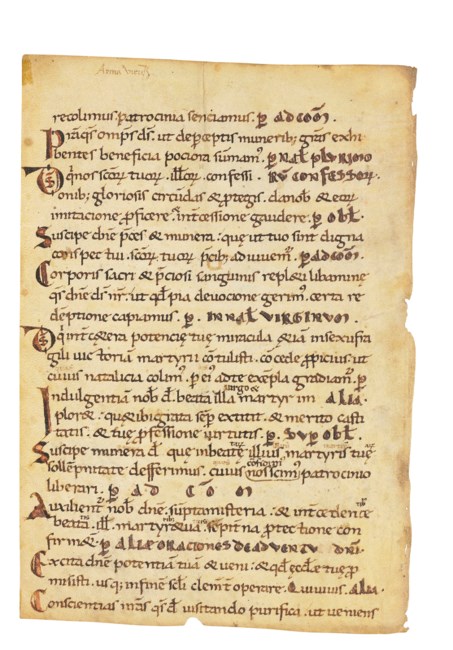 recolimus. patrocinia senciamus. p̄ AD COM̄.
Prā qs omps ds. ut de perceptis munerib; grās exhi
bentes beneficia pociora sumam̄. p̄ NAL PLVRIMO
qnos scōr tuor. illor. confessi. RV̄ CONFESSOR.
onib; gloriosis circūdas & ꝑtegis. da nob & eor
imitacione ꝓficere. & intcessione gaudere. p̄ OBL.
Suscipe dn̄e p̄ces & munera. que ut tuo sint digna
conspectui. scōr tuor p̄cib; adiuvem̄. p̄ AD COM̄.
Corporis sacri & p̄ciosi sanguinis repleti libamine
qs dn̄e ds nr̄. ut qd pia devocione gerim; certa re
deptione capiamus. p̄. IN NAL VIRGINVM
qui int cetera potencie tue miracula & iā in sexu fra
gili victoriam martyrii contulisti. cōcede ꝓpicius. ut
cuius natalicia colim; p ei; ad te exēpla gradiam̄. p̄
virgo &
Indulgentia nob d beata illa martyr im ALIA.
plor&. que & ibi grata sēp extitit. & merito casti
tatis. & tue ꝓfessione virtutis. p̄ SVP OBL.
Suscipe munera d que in beate illius martyris tue
sollēpnitate defferimus. cuius nos scim; patrocinio
confidim;
liberari. p̄ AD COM
Auxilient nob dn̄e supta misteria. & intcedente
beata. ill. martyre tua. sēpitna protectione con
firm&. p̄ ALIAE ORACIONES DE ADVENTV DNI.
Excita dn̄e potentiā tuā & veni. & qd eccle tue ꝓ
misisti. usq; in finē scli clemt operare. Qui vivis. ALIA.
Conscientias nras qs d visitando purifica. ut veniens